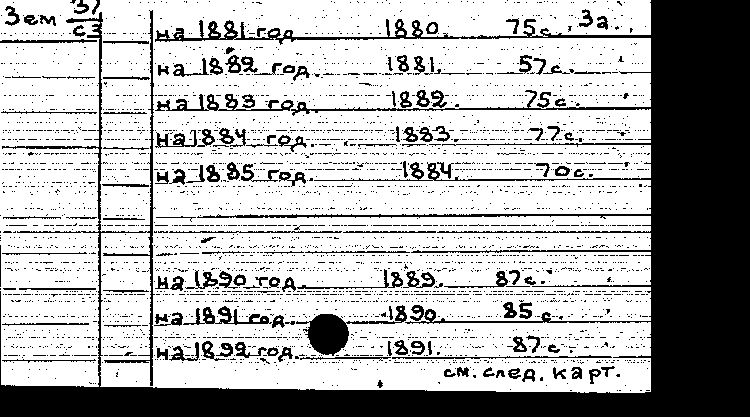 Зем 37 на 1881 год 1880. 75с. За.
сз
на 1882 год. 1881. 57с.
на 1883 год. 1882. 75с.
на 1884 год. 1883. 77с.
на 1885 год. 1884. 70с.
на 1890 год. 1889. 87с.
на 1891 год. 1890. 85 с.
на 1892 год. 1891. 87с.
см. след. карт.